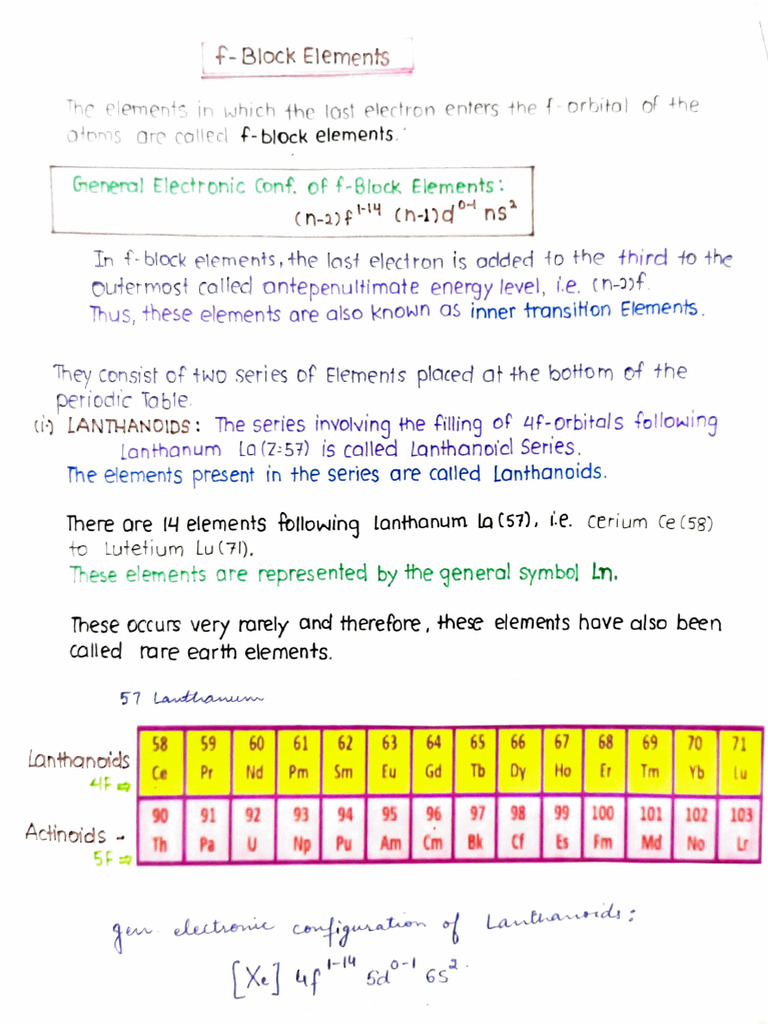 f-Block Elements
The elements in which the last electron enters the f-orbital of the
atoms are called f-block elements.
General Electronic Conf. of f-Block Elements:
(n-2)f¹⁻¹⁴ (n-1)d⁰⁻¹ ns²
In f-block elements, the last electron is added to the third to the
outermost called antepenultimate energy level, i.e. (n-2)f.
Thus, these elements are also known as inner transition Elements.
They consist of two series of Elements placed at the bottom of the
periodic Table.
(i) LANTHANOIDS: The series involving the filling of 4f-orbitals following
Lanthanum La(Z=57) is called Lanthanoid Series.
The elements present in the series are called Lanthanoids.
There are 14 elements following lanthanum La(57), i.e. cerium Ce(58)
to Lutetium Lu(71).
These elements are represented by the general symbol Ln.
These occurs very rarely and therefore, these elements have also been
called rare earth elements.
57 Lanthanum
58 59 60 61 62 63 64 65 66 67 68 69 70 71
Lanthanoids
Ce Pr Nd Pm Sm Eu Gd Tb Dy Ho Er Tm Yb Lu
4F ⇒
90 91 92 93 94 95 96 97 98 99 100 101 102 103
Actinoids -
Th Pa U Np Pu Am Cm Bk Cf Es Fm Md No Lr
5F ⇒
gen. electronic configuration of Lanthanoids:
[Xe] 4f¹⁻¹⁴ 5d⁰⁻¹ 6s².